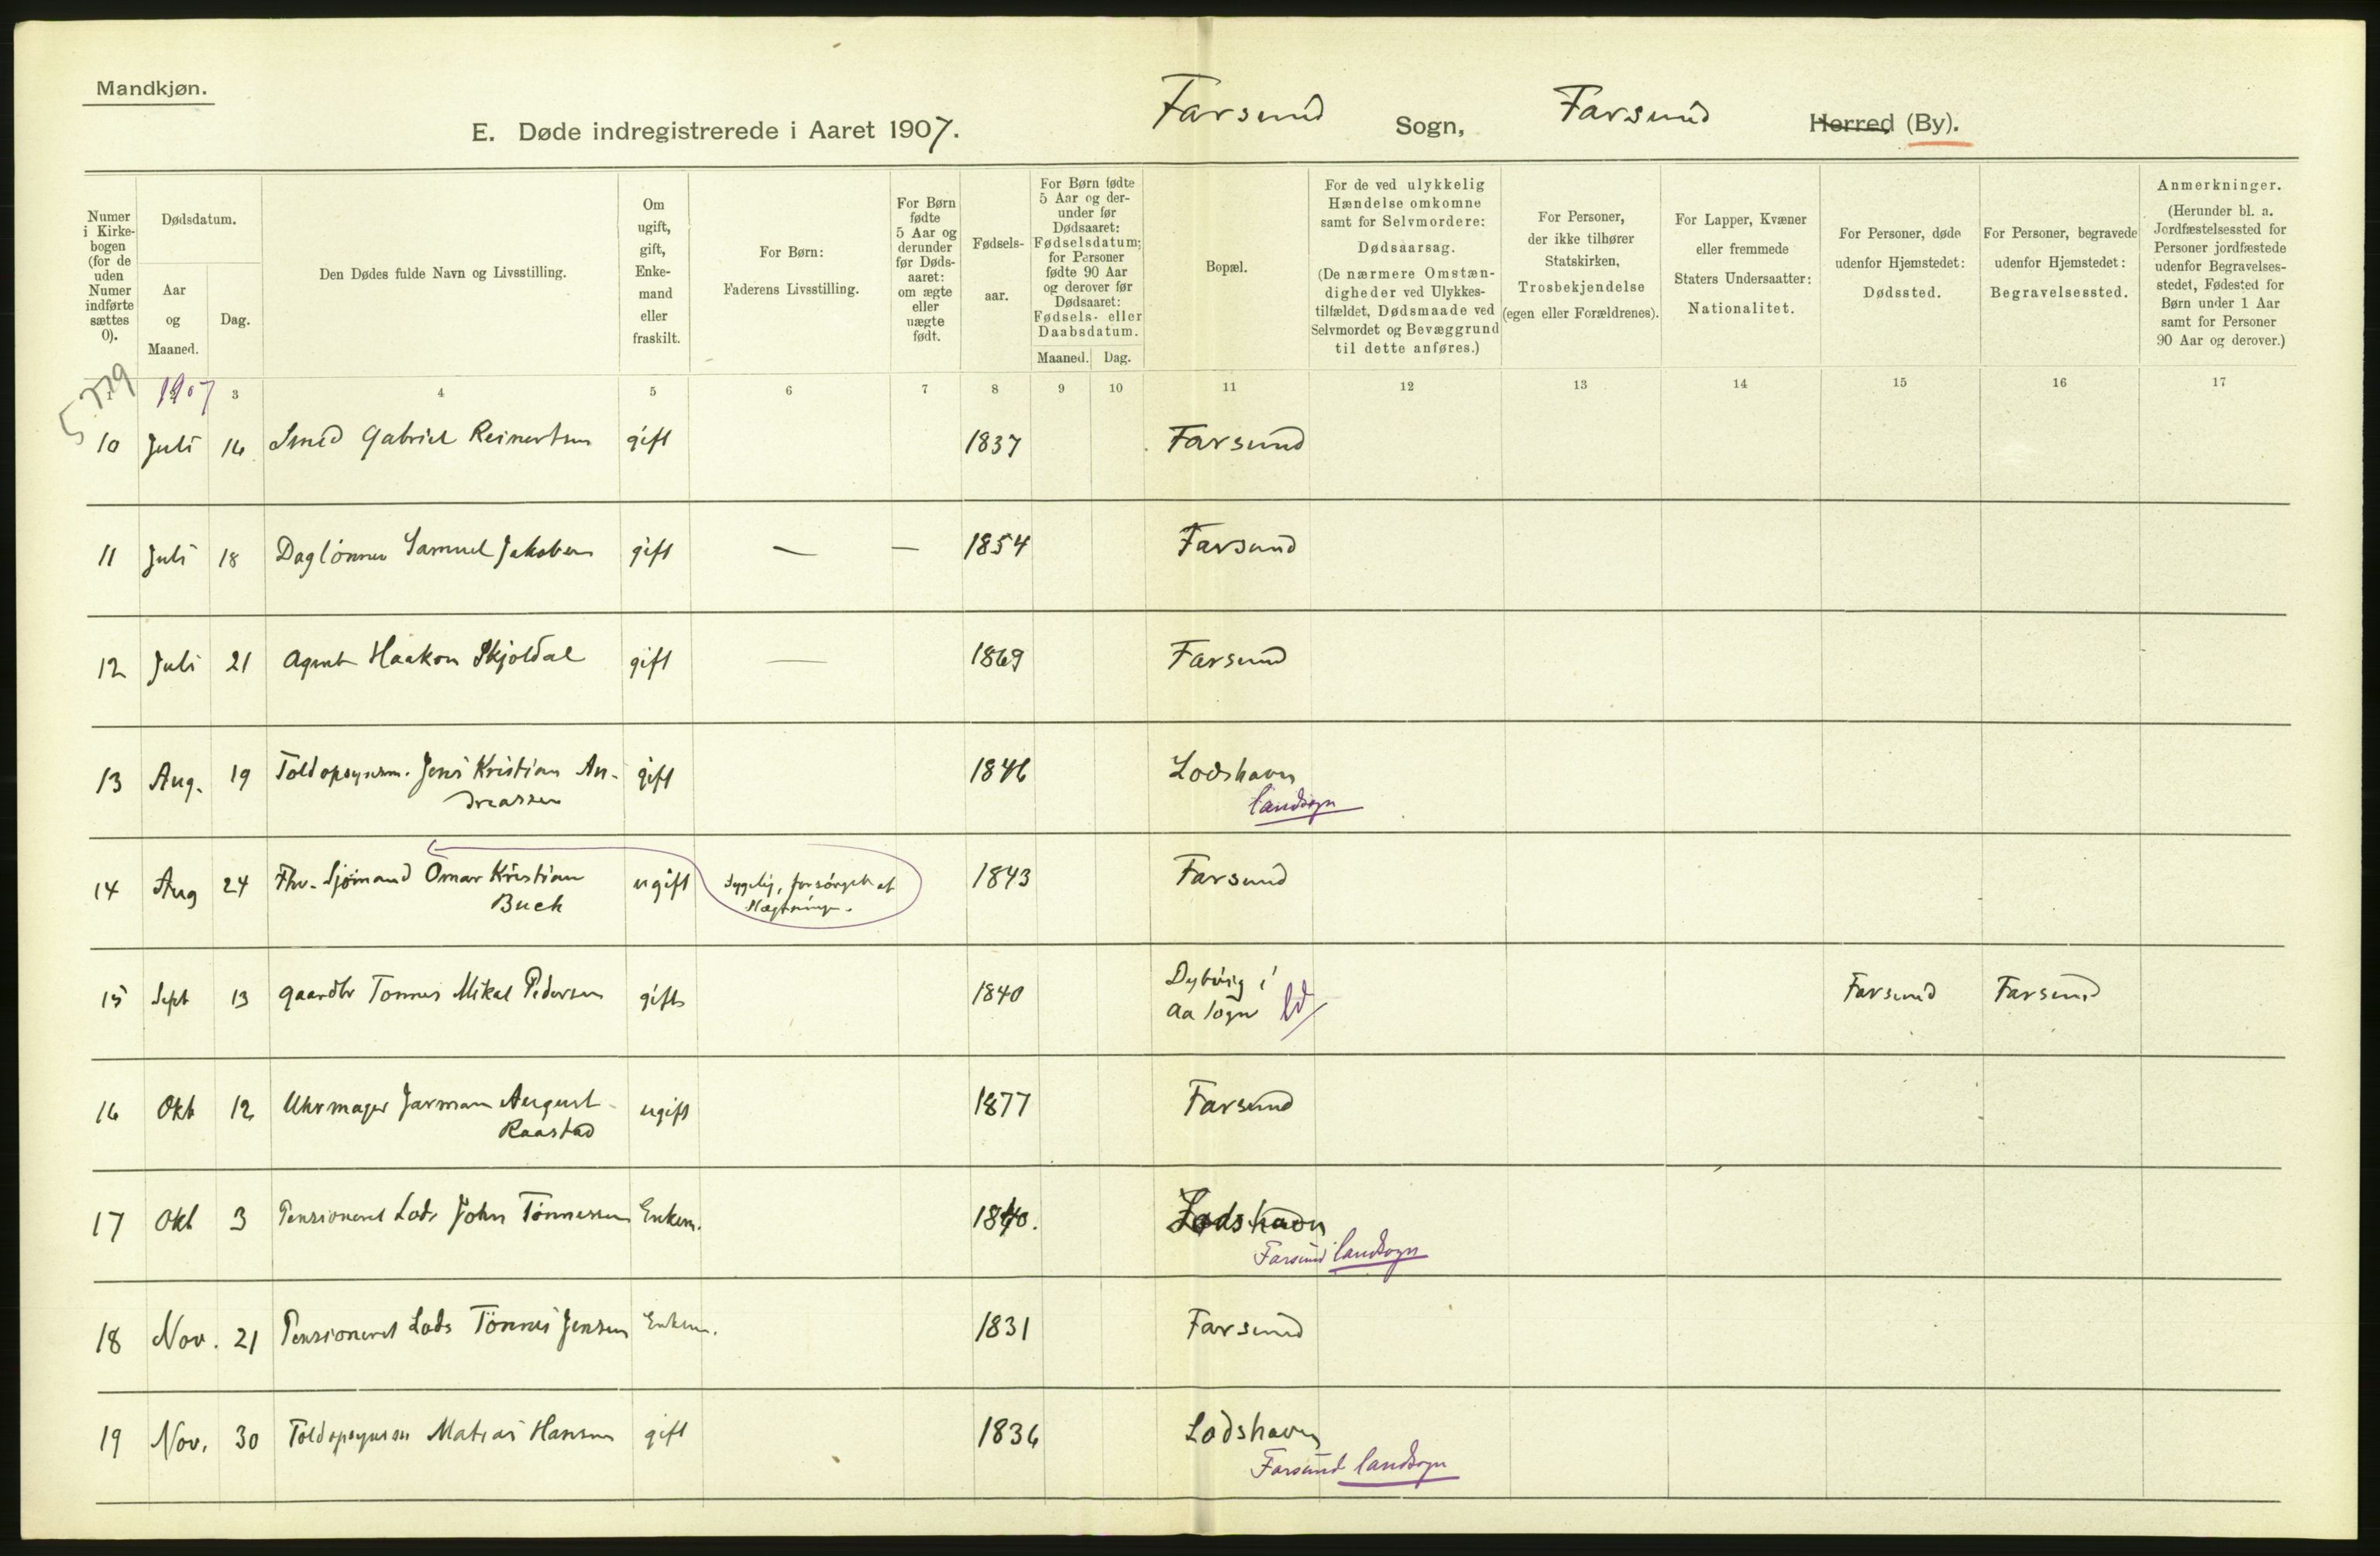 Mandkjøn.
E. Døde indregistrerede i Aaret 1907.
Farsund Sogn, Farsund Herred (By).
Numer i Kirkebogen (for de uden Numer indførte sættes 0).
Dødsdatum.
Aar og Maaned.
Dag.
Den Dødes fulde Navn og Livsstilling.
Om ugift, gift, Enkemand eller fraskilt.
For Børn: Faderens Livsstilling.
For Børn fødte 5 Aar og derunder før Dødsaaret: om ægte eller uægte født.
Fødselsaar.
For Børn fødte 5 Aar og derunder før Dødsaaret: Fødselsdatum; for Personer fødte 90 Aar og derover før Dødsaaret: Fødsels- eller Daabsdatum.
Maaned. Dag.
Bopæl.
For de ved ulykkelig Hændelse omkomne samt for Selvmordere: Dødsaarsag. (De nærmere Omstændigheder ved Ulykkestilfældet, Dødsmaade ved Selvmordet og Bevæggrund til dette anføres.)
For Personer, der ikke tilhører Statskirken, Trosbekjendelse (egen eller Forældrenes).
For Lapper, Kvæner eller fremmede Staters Undersaatter: Nationalitet.
For Personer, døde udenfor Hjemstedet: Dødssted.
For Personer, begravede udenfor Hjemstedet: Begravelsessted.
Anmerkninger. (Herunder bl. a. Jordfæstelsessted for Personer jordfæstede udenfor Begravelsesstedet, Fødested for Børn under 1 Aar samt for Personer 90 Aar og derover.)
1907 3 4 5 6 7 8 9 10 11 12 13 14 15 16 17
10 Juli 16 Smed Gabriel Reinertsen gift 1837 Farsund
11 Juli 18 Daglønner Samuel Jakobsen gift — — 1854 Farsund
12 Juli 21 Agent Haakon Skjoldal gift — 1869 Farsund
13 Aug. 19 Toldopsynsm. Jens Kristian An- gift 1846 Lodshavn
dreassen landsogn
14 Aug 24 Fhv. Sjømand Omar Kristian ugift sygelig, forsørget af 1843 Farsund
Buch Slægtninge.
15 Sept 13 Gaardbr Tønnes Mikal Pedersen gift 1840 Dybvig i Farsund Farsund
Aa sogn
16 Okt 12 Uhrmager Jarman August ugift 1877 Farsund
Raastad
17 Okt 3 Pensioneret Lods John Tønnessen Enkem. 1840. Lodshavn
Farsund landsogn
18 Nov. 21 Pensioneret Lods Tönnes Jensen Enkem. 1831 Farsund
19 Nov. 30 Toldopsynsm Matias Hansen gift 1836 Lodshavn
Farsund landsogn